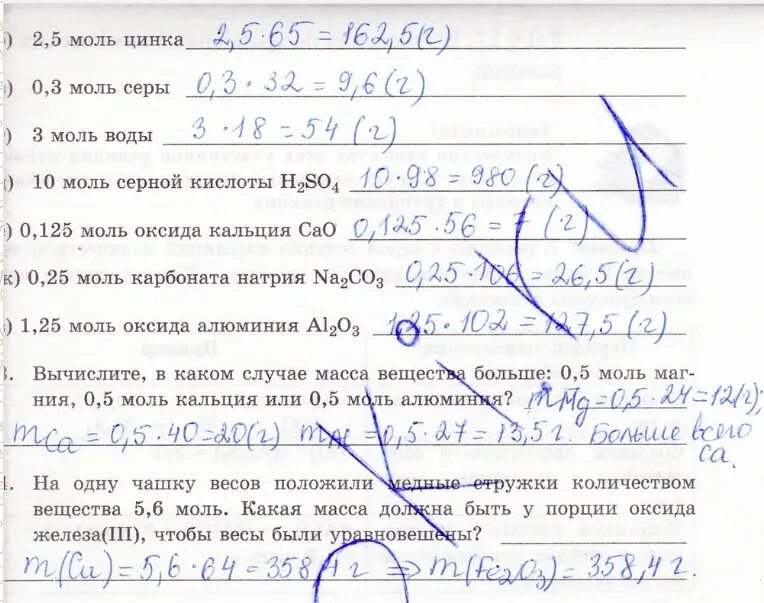 ) 2,5 моль цинка 2,5·65=162,5(г)
) 0,3 моль серы 0,3·32=9,6(г)
) 3 моль воды 3·18=54 (г)
) 10 моль серной кислоты H₂SO₄ 10·98=980 (г)
) 0,125 моль оксида кальция CaO 0,125·56=7 (г)
к) 0,25 моль карбоната натрия Na₂CO₃ 0,25·106=26,5(г)
) 1,25 моль оксида алюминия Al₂O₃ 1,25·102=127,5(г)
3. Вычислите, в каком случае масса вещества больше: 0,5 моль маг-
ния, 0,5 моль кальция или 0,5 моль алюминия? mMg=0,5·24=12(г);
mCa=0,5·40=20(г) mAl=0,5·27=13,5г. Больше всего
Ca.
4. На одну чашку весов положили медные стружки количеством
вещества 5,6 моль. Какая масса должна быть у порции оксида
железа(III), чтобы весы были уравновешены?
m(Cu)=5,6·64=358,4г ⇒ m(Fe₂O₃)=358,4г.